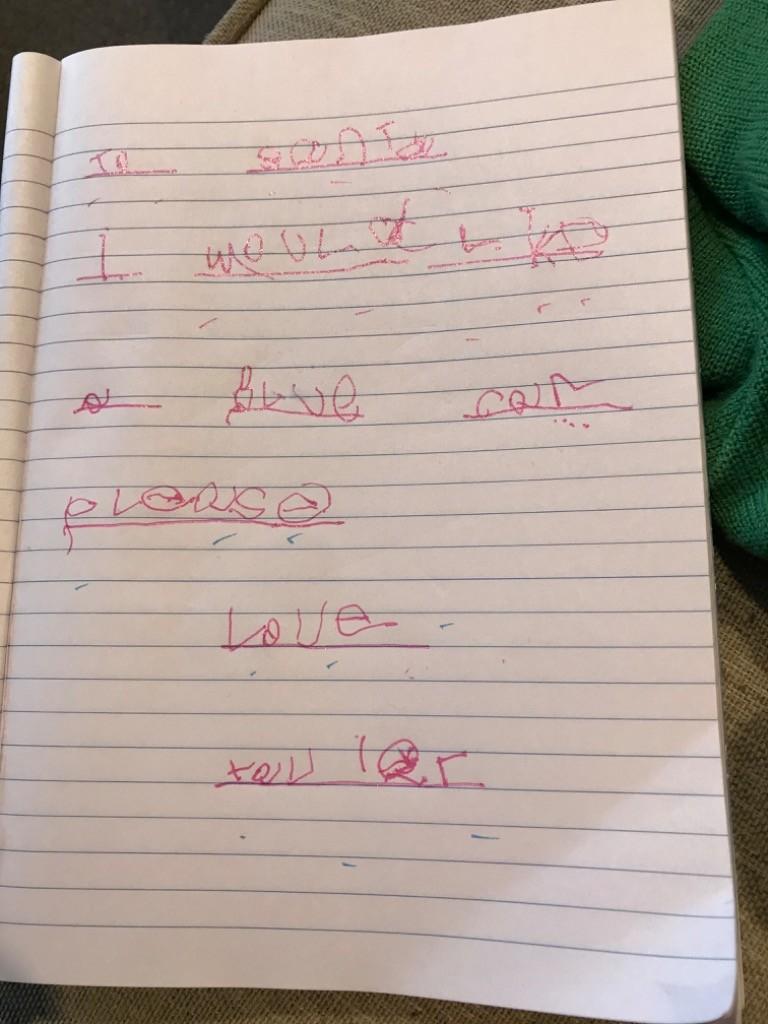 To santa
I would like
a blue car
please
Love